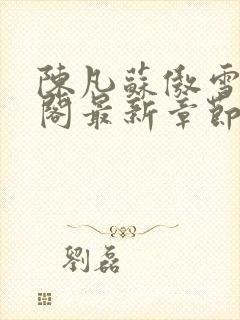 陳凡蘇傲雪
閣最新章節
劉磊